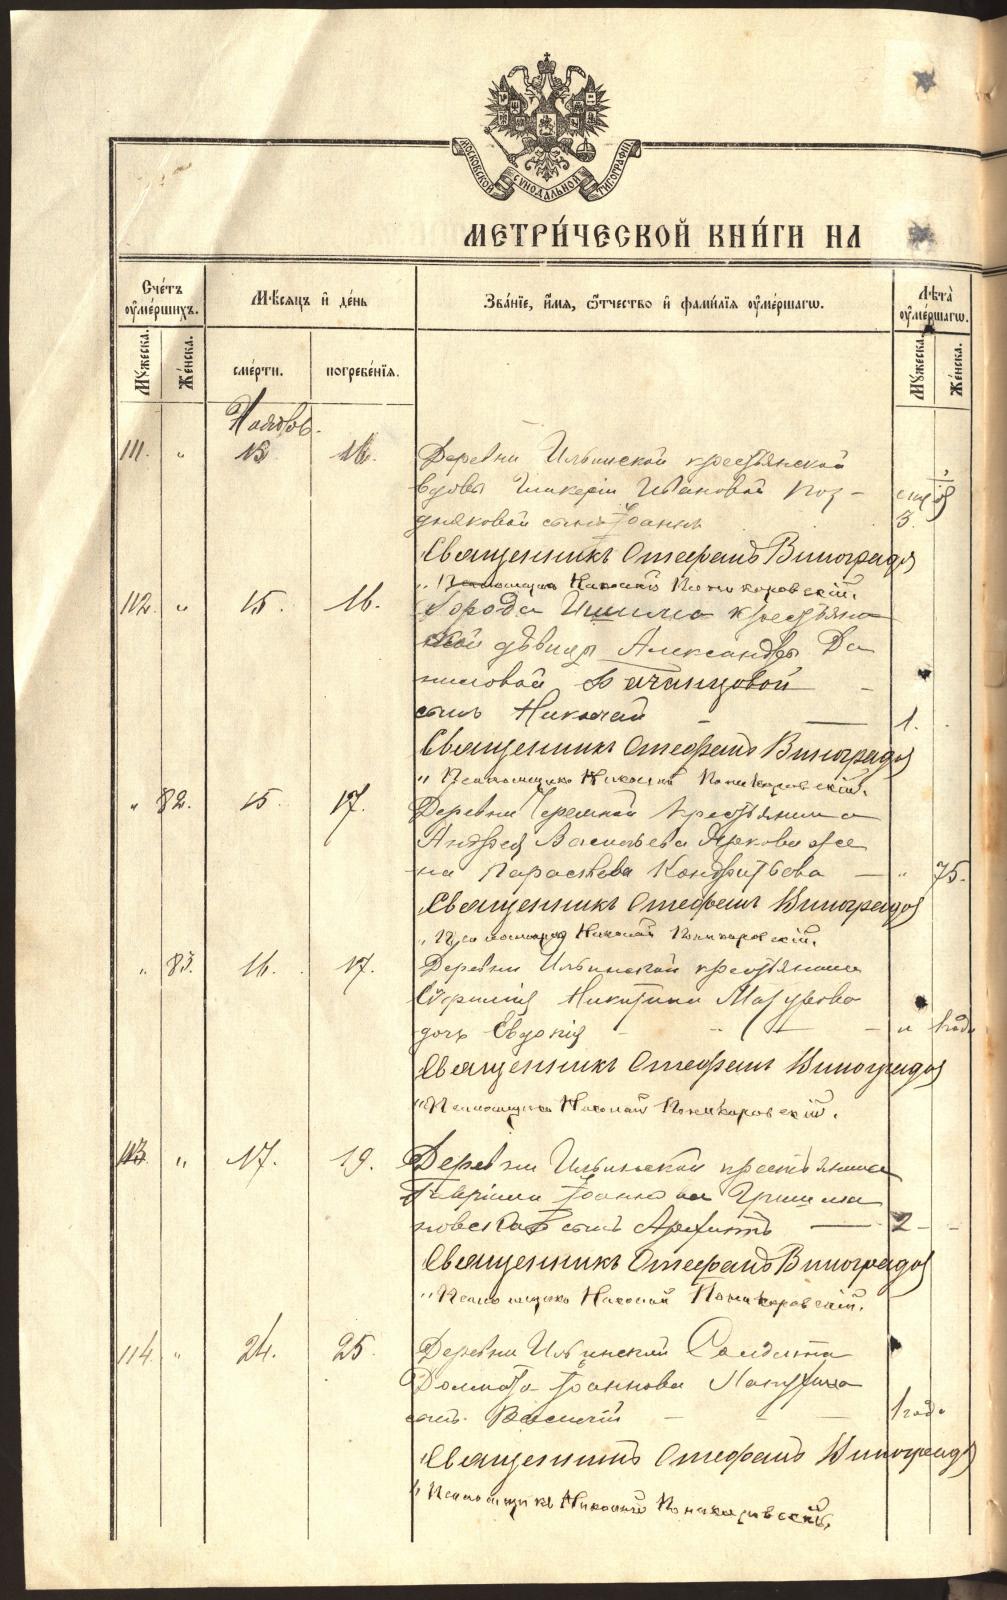 МОСКОВСКОЙ СѴНОДАЛЬНОЙ ТИПОГРАФІИ
МЕТРИ́ЧЕСКОЙ КНИ́ГИ НА
Сче́тъ оу҆ме́ршихъ.
Мѣ́сяцъ и҆ де́нь
Зва́нїе, и҆́мя, ѻ҆́тчество и҆ фами́лїя оу҆ме́ршагѡ.
Лѣта̀ оу҆ме́ршагѡ.
Му́жеска.
Же́нска.
сме́рти.
погребе́нїя.
Му́жеска.
Же́нска.
Ноябрь.
111. " 13 16. Деревни Ильинской крестьянской
вдовы Ивановой Поз-
дняковой сынъ Іоаннъ
Священникъ Стефанъ Виноградов
" Псаломщикъ Николай Поникаровскій.
112. " 15. 16. Города Ишима крестьянс
кой дѣвицы Александры Да
ниловой
сынъ Николай — 1.
Священникъ Стефанъ Виноградов
" Псаломщикъ Николай Поникаровскій.
" 82. 15. 17. Деревни Черемной Крестьянина
Андрея Васильева Яркова же
на Параскева Кондратьева — " 75.
Священникъ Стефанъ Виноградов
" Псаломщикъ Николай Поникаровскій.
" 83. 16. 17. Деревни Ильинской крестьянина
Никитина Мазурова
дочь Евдокія - " - " 1 года
Священникъ Стефанъ Виноградов
" Псаломщикъ Николай Поникаровскій.
113. " 17. 19. Деревни Ильинской крестьянина
Гавріила Іоаннова Гришма
новскаго сынъ — 2 - -
Священникъ Стефанъ Виноградов
" Псаломщикъ Николай Поникаровскій.
114. " 24. 25. Деревни Ильинской Солдата
Долмата Іоаннова Лапухина
сынъ Василій - - - 1 года
Священникъ Стефанъ Виноградов
" Псаломщикъ Николай Поникаровскій.